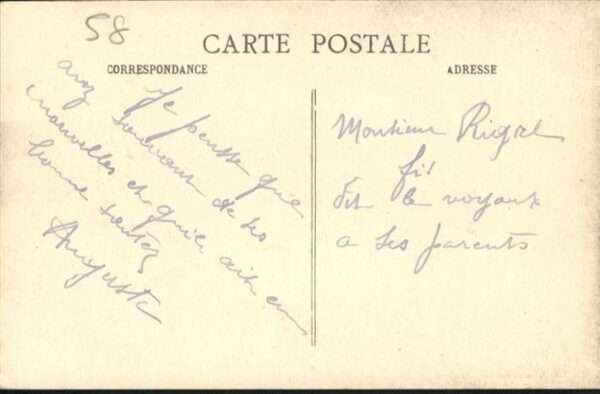 58
CARTE POSTALE
CORRESPONDANCE
ADRESSE
Je pense que
avez souvent de ses
nouvelles et qu'il est en
bonne santé
Auguste
Monsieur Rigal
fils
dit le voyou
a ses parents